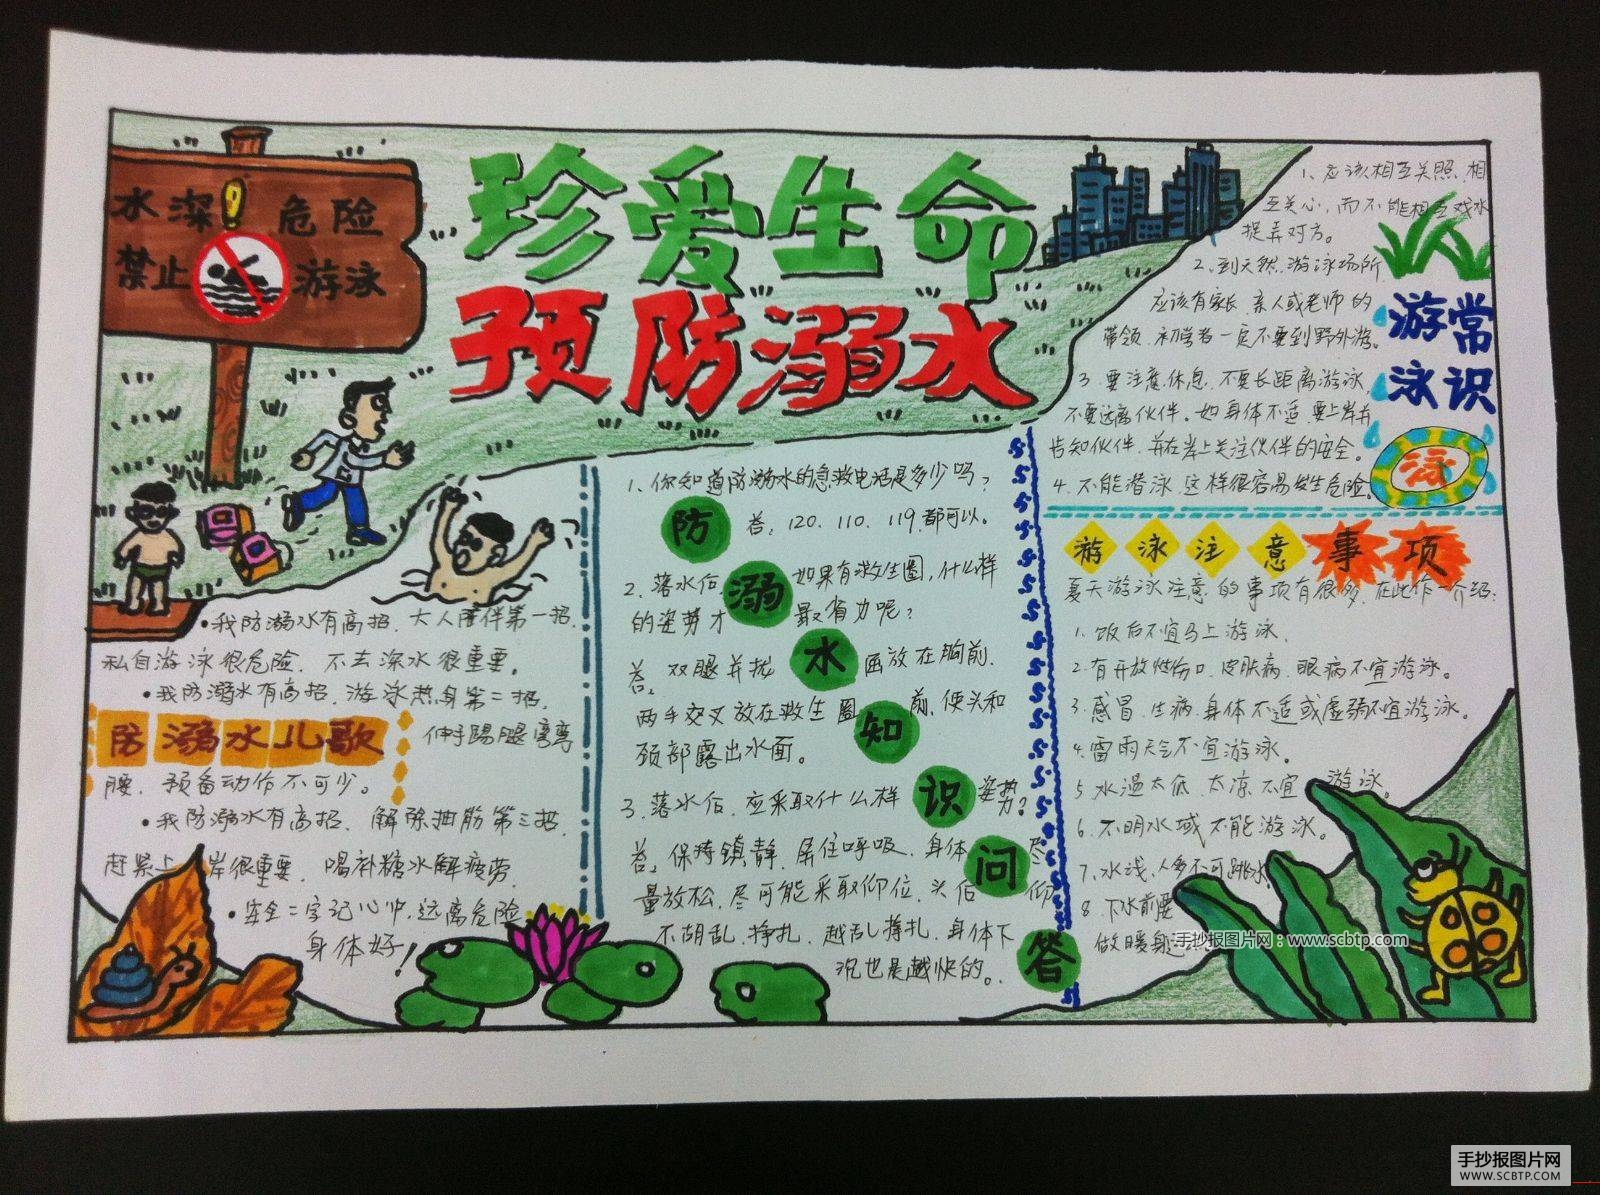 珍爱生命
预防溺水
水深!危险
禁止游泳
•我防溺水有高招、大人陪伴第一招.
私自游泳很危险、不去深水很重要。
•我防溺水有高招、游泳热身第二招.
防溺水儿歌
伸手踢腿弯弯
腰、预备动作不可少。
•我防溺水有高招、解除抽筋第三招.
赶紧上岸很重要、喝补糖水解疲劳.
•安全二字记心中.远离危险
身体好!
防溺水知识问答
1、你知道防溺水的急救电话是多少吗?
答:120、110、119.都可以。
2.落水后、如果有救生圈,什么样
的姿势才最省力呢?
答:双腿并拢 面放在胸前、
两手交叉放在救生圈 前、使头和
颈部露出水面。
3、落水后、应采取什么样姿势?
答:保持镇静、屏住呼吸、身体尽
量放松、尽可能采取仰位、头后仰
不胡乱、挣扎、越乱挣扎、身体下
沉也是越快的。
游泳常识
泳
1、应该相互关照、相
互关心,而不能相互戏水
捉弄对方。
2、到天然游泳场所
应该有家长、亲人或老师的
带领、初学者一定不要到野外游。
3、要注意休息、不要长距离游泳、
不要远离伙伴。如身体不适、要上岸并
告知伙伴、并在岸上关注伙伴的安全。
4、不能潜泳、这样很容易发生危险。
游泳注意事项
夏天游泳注意的事项有很多,在此作一介绍:
1.饭后不宜马上游泳.
2.有开放性伤口、皮肤病、眼病不宜游泳。
3.感冒、生病、身体不适或虚弱不宜游泳。
4.雷雨天气不宜游泳。
5.水温太低、太凉不宜游泳。
6.不明水域不能游泳。
7.水浅、人多不可跳水
8.下水前要
做暖身
手抄报图片网:www.scbtp.com
手抄报图片网
WWW.SCBTP.COM